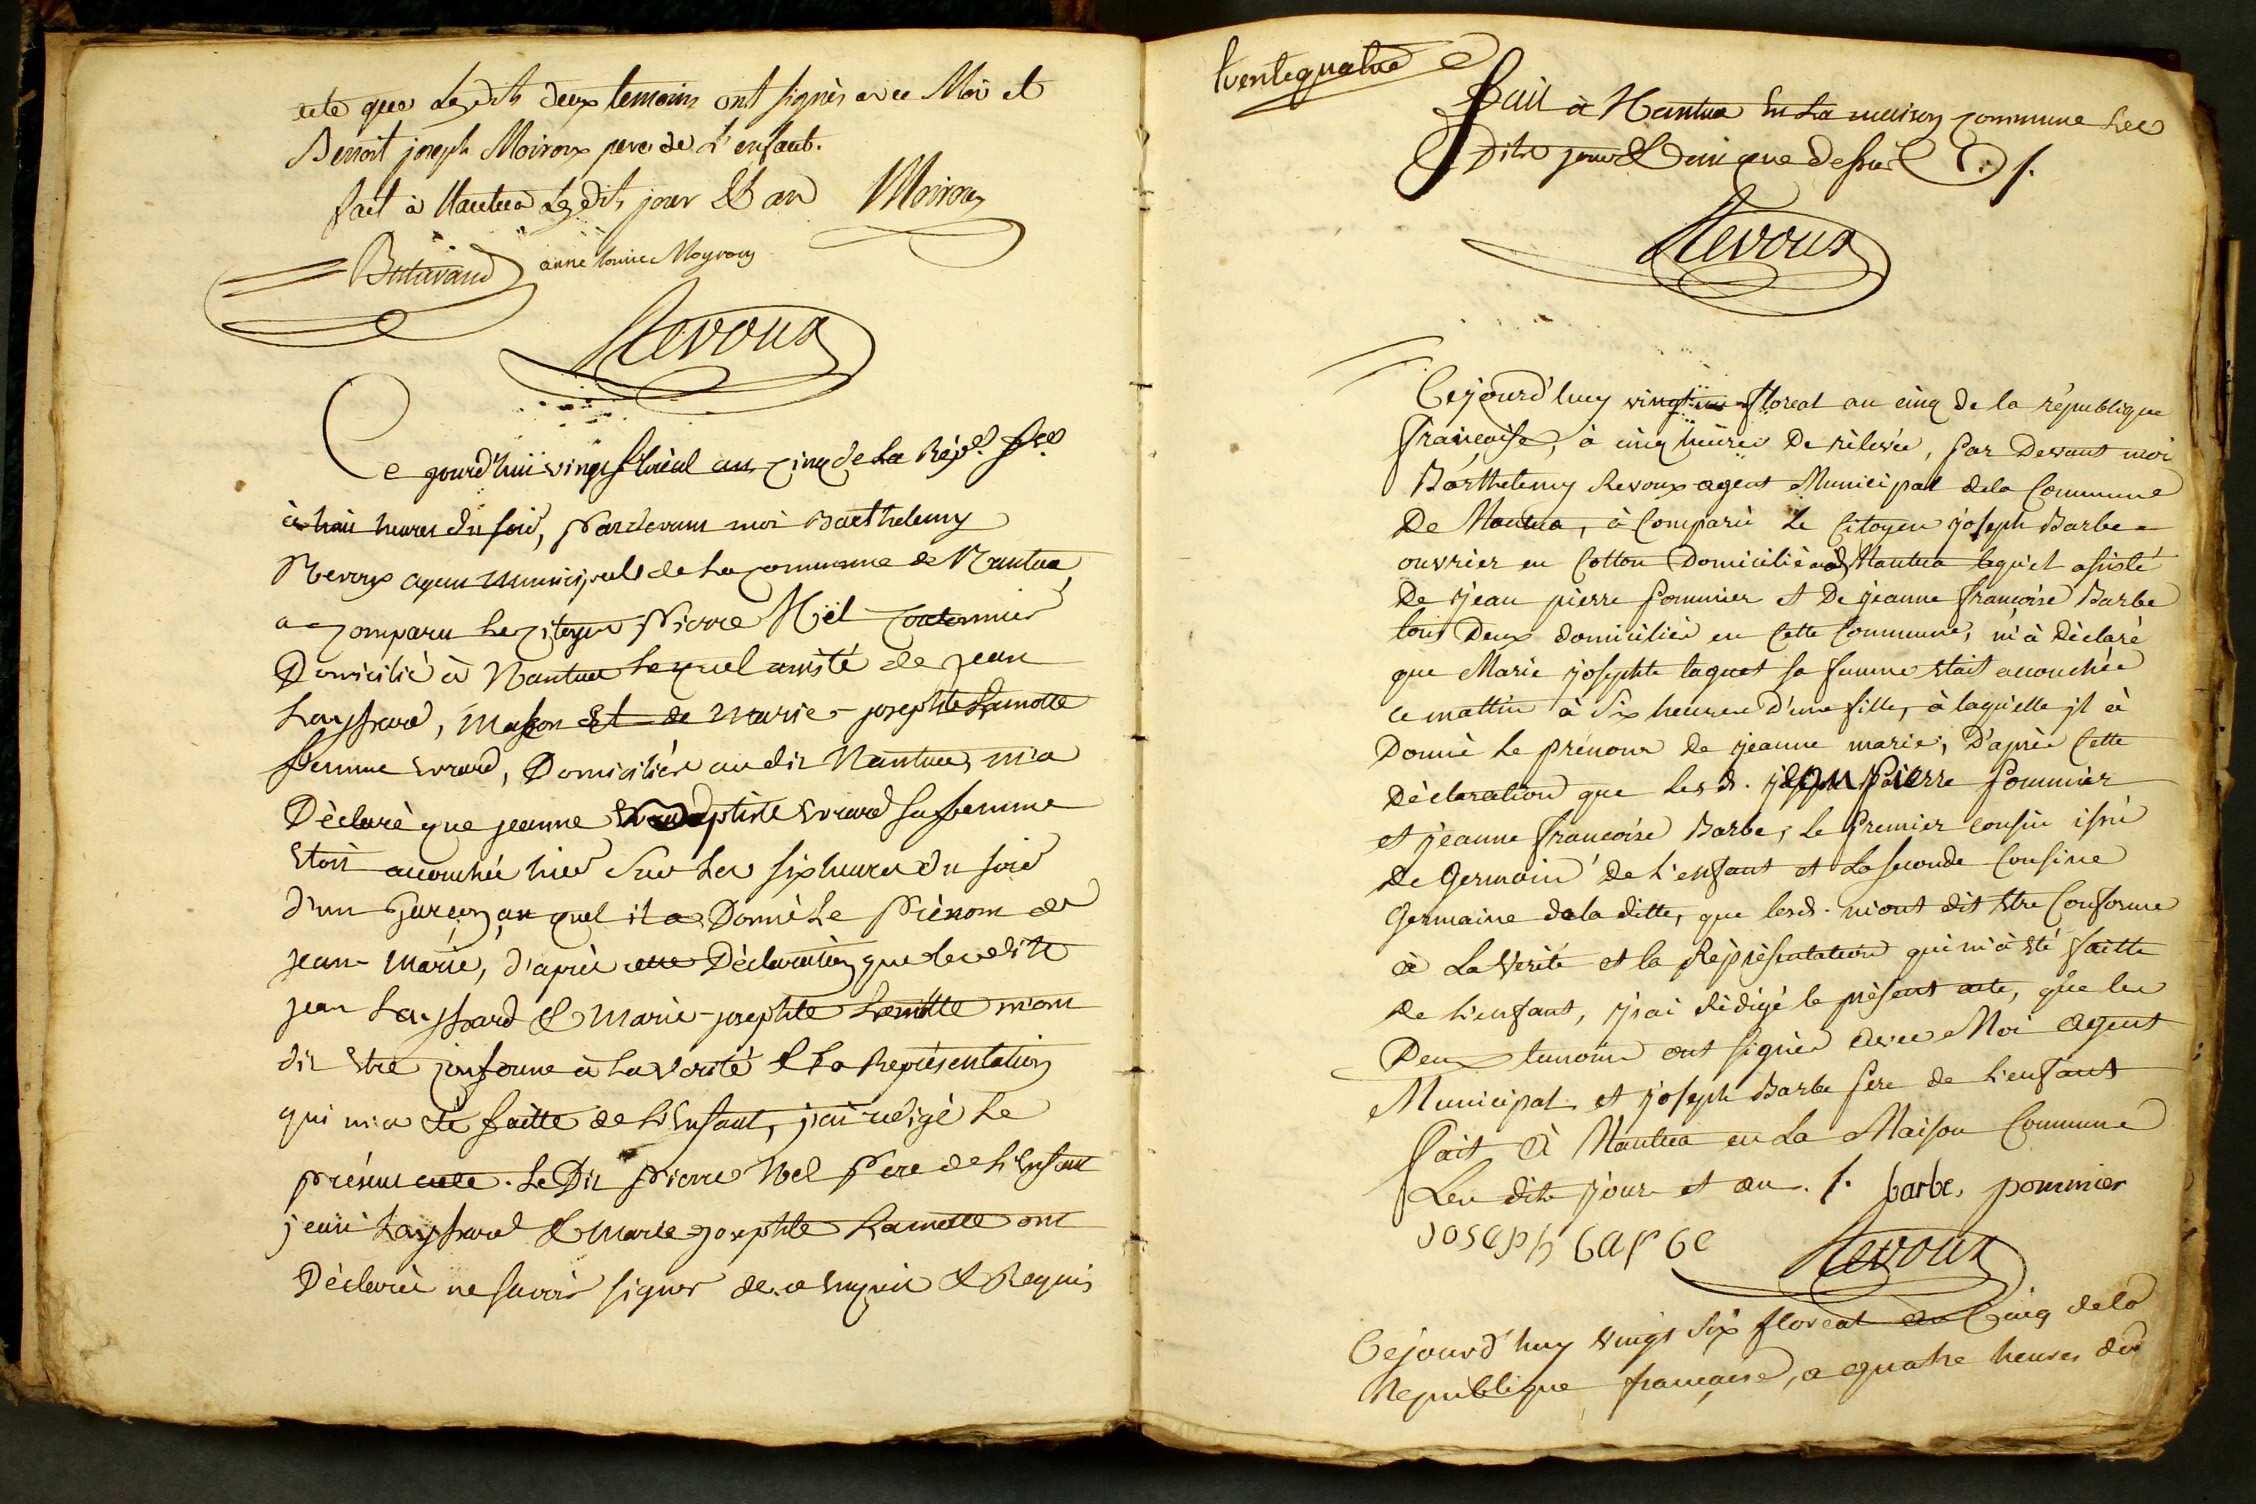 acte que lesdits deux temoins ont signès avec Moi et
Benoit joseph Moiroux pere de L'enfant.
fait à Nantua lesdits jour & an Moiroux
anne Moyroux
Revoux
Ce jourd'hui vingt floréal an cinq de La Rép.e fr.se
à huit heures du soir, Pardevant moi Barthelemy
Revoux agent municipal de La Commune de Nantua,
a comparu Le citoyen Pierre Noël Cordonnier
Domicilié à Nantua Lequel assisté de jean
Laissard, Masson Et de Marie-josephte Lamotte
femme Evrard, Domiciliés audit Nantua, m'a
Déclarè que jeanne Baptiste Evrard sa femme
Etoit accouchée hier Sur Les six heures du soir
d'un Garçon, au quel il a Donné Le Prénom de
jean-Marie, d'après cette Déclaration que Lesdits
jean Laissard & Marie-josephte Lamotte m'ont
dit Etre conforme à La Vérité & La Représentation
qui m'a été faitte de L'Enfant, j'ai redigé Le
présent acte. Ledit Pierre Noel Père de L'Enfant
jean Laissard & Marie-josephte Lamotte ont
Déclarés ne savoir signer de ce Enquis & Requis
trentequatre
Fait à Nantua En La maison Commune Les
Dits jour & an que dessus
Revoux
Cejourd'huy vingt floreal an cinq de la république
française, à cinq heures De rélevée, par Devant moi
Barthelemy Revoux agent Municipal dela Commune
De Nantua, à Comparù le Citoyen joseph Barbe
ouvrier en Cotton Domicilié à Nantua lequel assisté
De jean pierre Pommier et De jeanne françoise Barbe
tous Deux domiciliés en Cette Commune, m'à Déclaré
que Marie josephte taquet sa femme etait accouchée
ce mattin à Six heures D'une fille, à laquelle jl à
Donnè le prénom de jeanne marie, D'après Cette
Déclaration que lesd. jean Pierre Pommier
et jeanne françoise Barbe, le premier cousin issu
de Germain de l'enfant et La seconde Cousine
Germaine dela ditte, que lesd. m'ont dit Etre Conforme
à La Verité et la Réprésentation qui m'à Eté faitte
de L'enfant, j'ai rédigé le présent acte, que les
Deux temoins ont signès avec Moi Agent
Municipal et joseph Barbe pere de L'enfant
fait à Nantua en La Maison Commune
Les dits jour et an. f. barbe, pommier
joseph barbe Revoux
Cejourd'huy vingt Six floreal an Cinq dela
Republique française, a quatre heures du